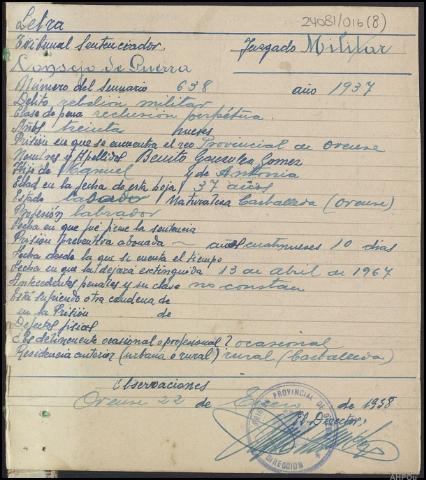 Letra
24081/016(8)
Tribunal Sentenciador. Juzgado Militar
Consejo de Guerra
Número del sumario 638 año 1937
Delito rebelión militar
Clase de pena reclusión perpétua
Años treinta meses
Prisión en que se encuentra el reo Provincial de Orense
Nombres y Apellidos Benito González Gomez
Hijo de Manuel y de Antonia
Edad en la fecha de esta hoja 37 años
Estado Naturaleza Carballeda (Orense)
Profesión labrador
Fecha en que fué firme la sentencia
Prisión preventiva abonada años cuatro meses 10 dias
Fecha desde la que se cuenta el tiempo
Fecha en que la dejará extinguida 13 de abril de 1967
Antecedentes penales y su clase no constan
Está sufriendo otra condena de
en la Prisión de
Defectos físicos
¿Es delincuente ocasional o profesional? ocasional
Residencia anterior (urbana o rural) rural (Carballeda)
Observaciones
Orense 22 de Enero de 1938
El Director,
PROVINCIAL DE
DIRECCION
AHPOu